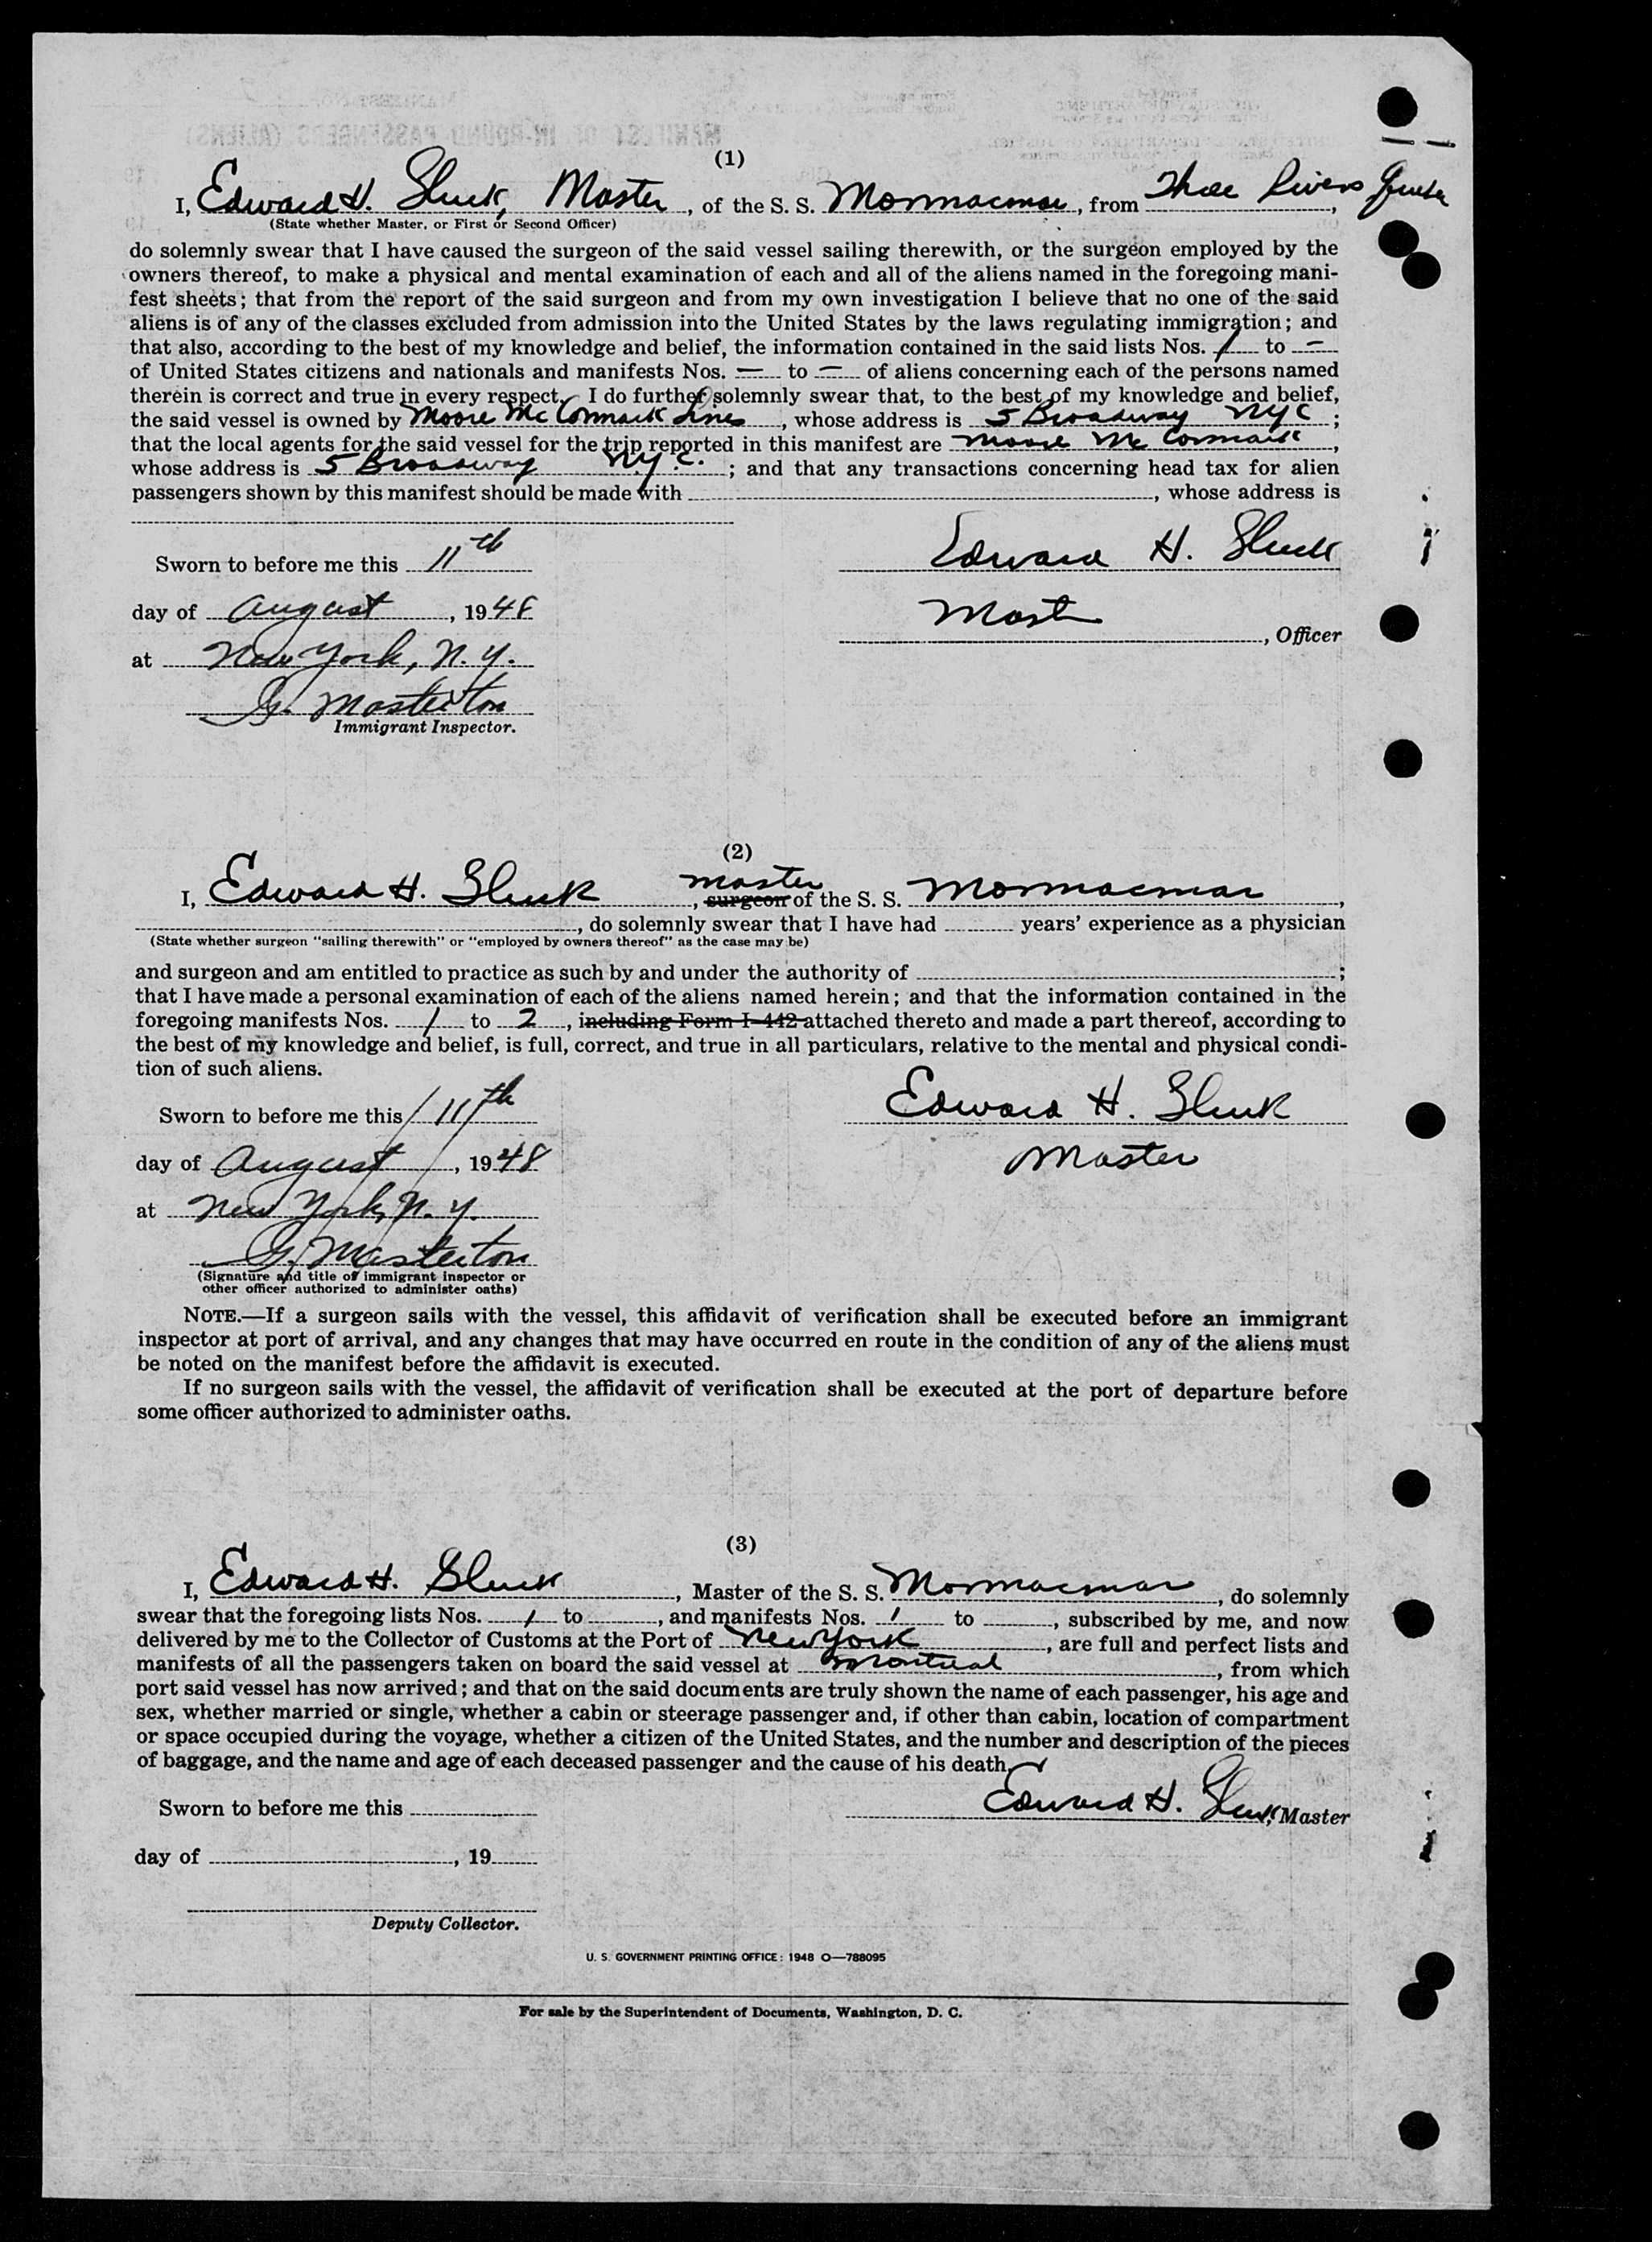 (1)
I, Edward H. Sluck, Master, of the S. S. Mormacmar, from Three Rivers Quebec,
(State whether Master, or First or Second Officer)
do solemnly swear that I have caused the surgeon of the said vessel sailing therewith, or the surgeon employed by the
owners thereof, to make a physical and mental examination of each and all of the aliens named in the foregoing mani-
fest sheets; that from the report of the said surgeon and from my own investigation I believe that no one of the said
aliens is of any of the classes excluded from admission into the United States by the laws regulating immigration; and
that also, according to the best of my knowledge and belief, the information contained in the said lists Nos. 1 to —
of United States citizens and nationals and manifests Nos. — to — of aliens concerning each of the persons named
therein is correct and true in every respect. I do further solemnly swear that, to the best of my knowledge and belief,
the said vessel is owned by Moore McCormack Lines, whose address is 5 Broadway NYC;
that the local agents for the said vessel for the trip reported in this manifest are Moore McCormack,
whose address is 5 Broadway N.Y.C.; and that any transactions concerning head tax for alien
passengers shown by this manifest should be made with , whose address is
Sworn to before me this 11th Edward H. Sluck
day of August, 1948 Mast
, Officer
at New York, N. Y.
G. Masterton
Immigrant Inspector.
(2)
I, Edward H. Sluck, master surgeon of the S. S. Mormacmar,
, do solemnly swear that I have had years' experience as a physician
(State whether surgeon "sailing therewith" or "employed by owners thereof" as the case may be)
and surgeon and am entitled to practice as such by and under the authority of ;
that I have made a personal examination of each of the aliens named herein; and that the information contained in the
foregoing manifests Nos. 1 to 2, including Form I-442 attached thereto and made a part thereof, according to
the best of my knowledge and belief, is full, correct, and true in all particulars, relative to the mental and physical condi-
tion of such aliens.
Sworn to before me this 11th Edward H. Sluck
day of August, 1948 Master
at New York, N. Y.
G. Masterton
(Signature and title of immigrant inspector or
other officer authorized to administer oaths)
NOTE.—If a surgeon sails with the vessel, this affidavit of verification shall be executed before an immigrant
inspector at port of arrival, and any changes that may have occurred en route in the condition of any of the aliens must
be noted on the manifest before the affidavit is executed.
If no surgeon sails with the vessel, the affidavit of verification shall be executed at the port of departure before
some officer authorized to administer oaths.
(3)
I, Edward H. Sluck, Master of the S. S. Mormacmar, do solemnly
swear that the foregoing lists Nos. 1 to , and manifests Nos. 1 to , subscribed by me, and now
delivered by me to the Collector of Customs at the Port of New York, are full and perfect lists and
manifests of all the passengers taken on board the said vessel at Montreal, from which
port said vessel has now arrived; and that on the said documents are truly shown the name of each passenger, his age and
sex, whether married or single, whether a cabin or steerage passenger and, if other than cabin, location of compartment
or space occupied during the voyage, whether a citizen of the United States, and the number and description of the pieces
of baggage, and the name and age of each deceased passenger and the cause of his death.
Sworn to before me this Edward H. Sluck, Master
day of , 19
Deputy Collector.
U. S. GOVERNMENT PRINTING OFFICE: 1948 O—788095
For sale by the Superintendent of Documents, Washington, D. C.